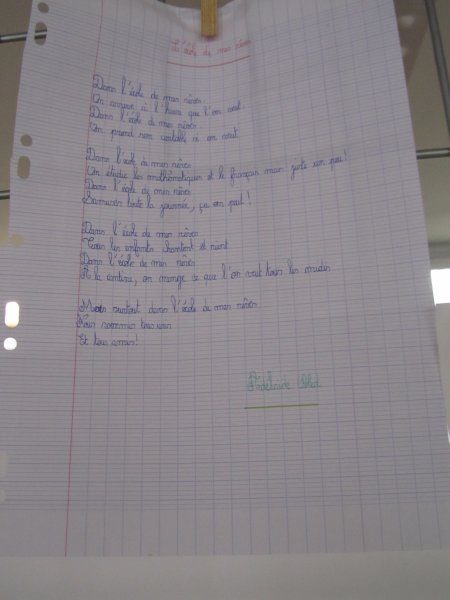 L'école de mes rêves
Dans l'école de mes rêves.
On arrive à l'heure que l'on veut
Dans l'école de mes rêves.
On prend son cartable si on veut
Dans l'école de mes rêves
On étudie les mathématiques et le français mais juste un peu!
Dans l'école de mes rêves
S'amuser toute la journée, ça on peut!
Dans l'école de mes rêves
Tous les enfants chantent et rient
Dans l'école de mes rêves
A la cantine, on mange ce que l'on veut tous les midis
Mais surtout dans l'école de mes rêves
Nous sommes tous unis
Et tous amis!
Adélaïde